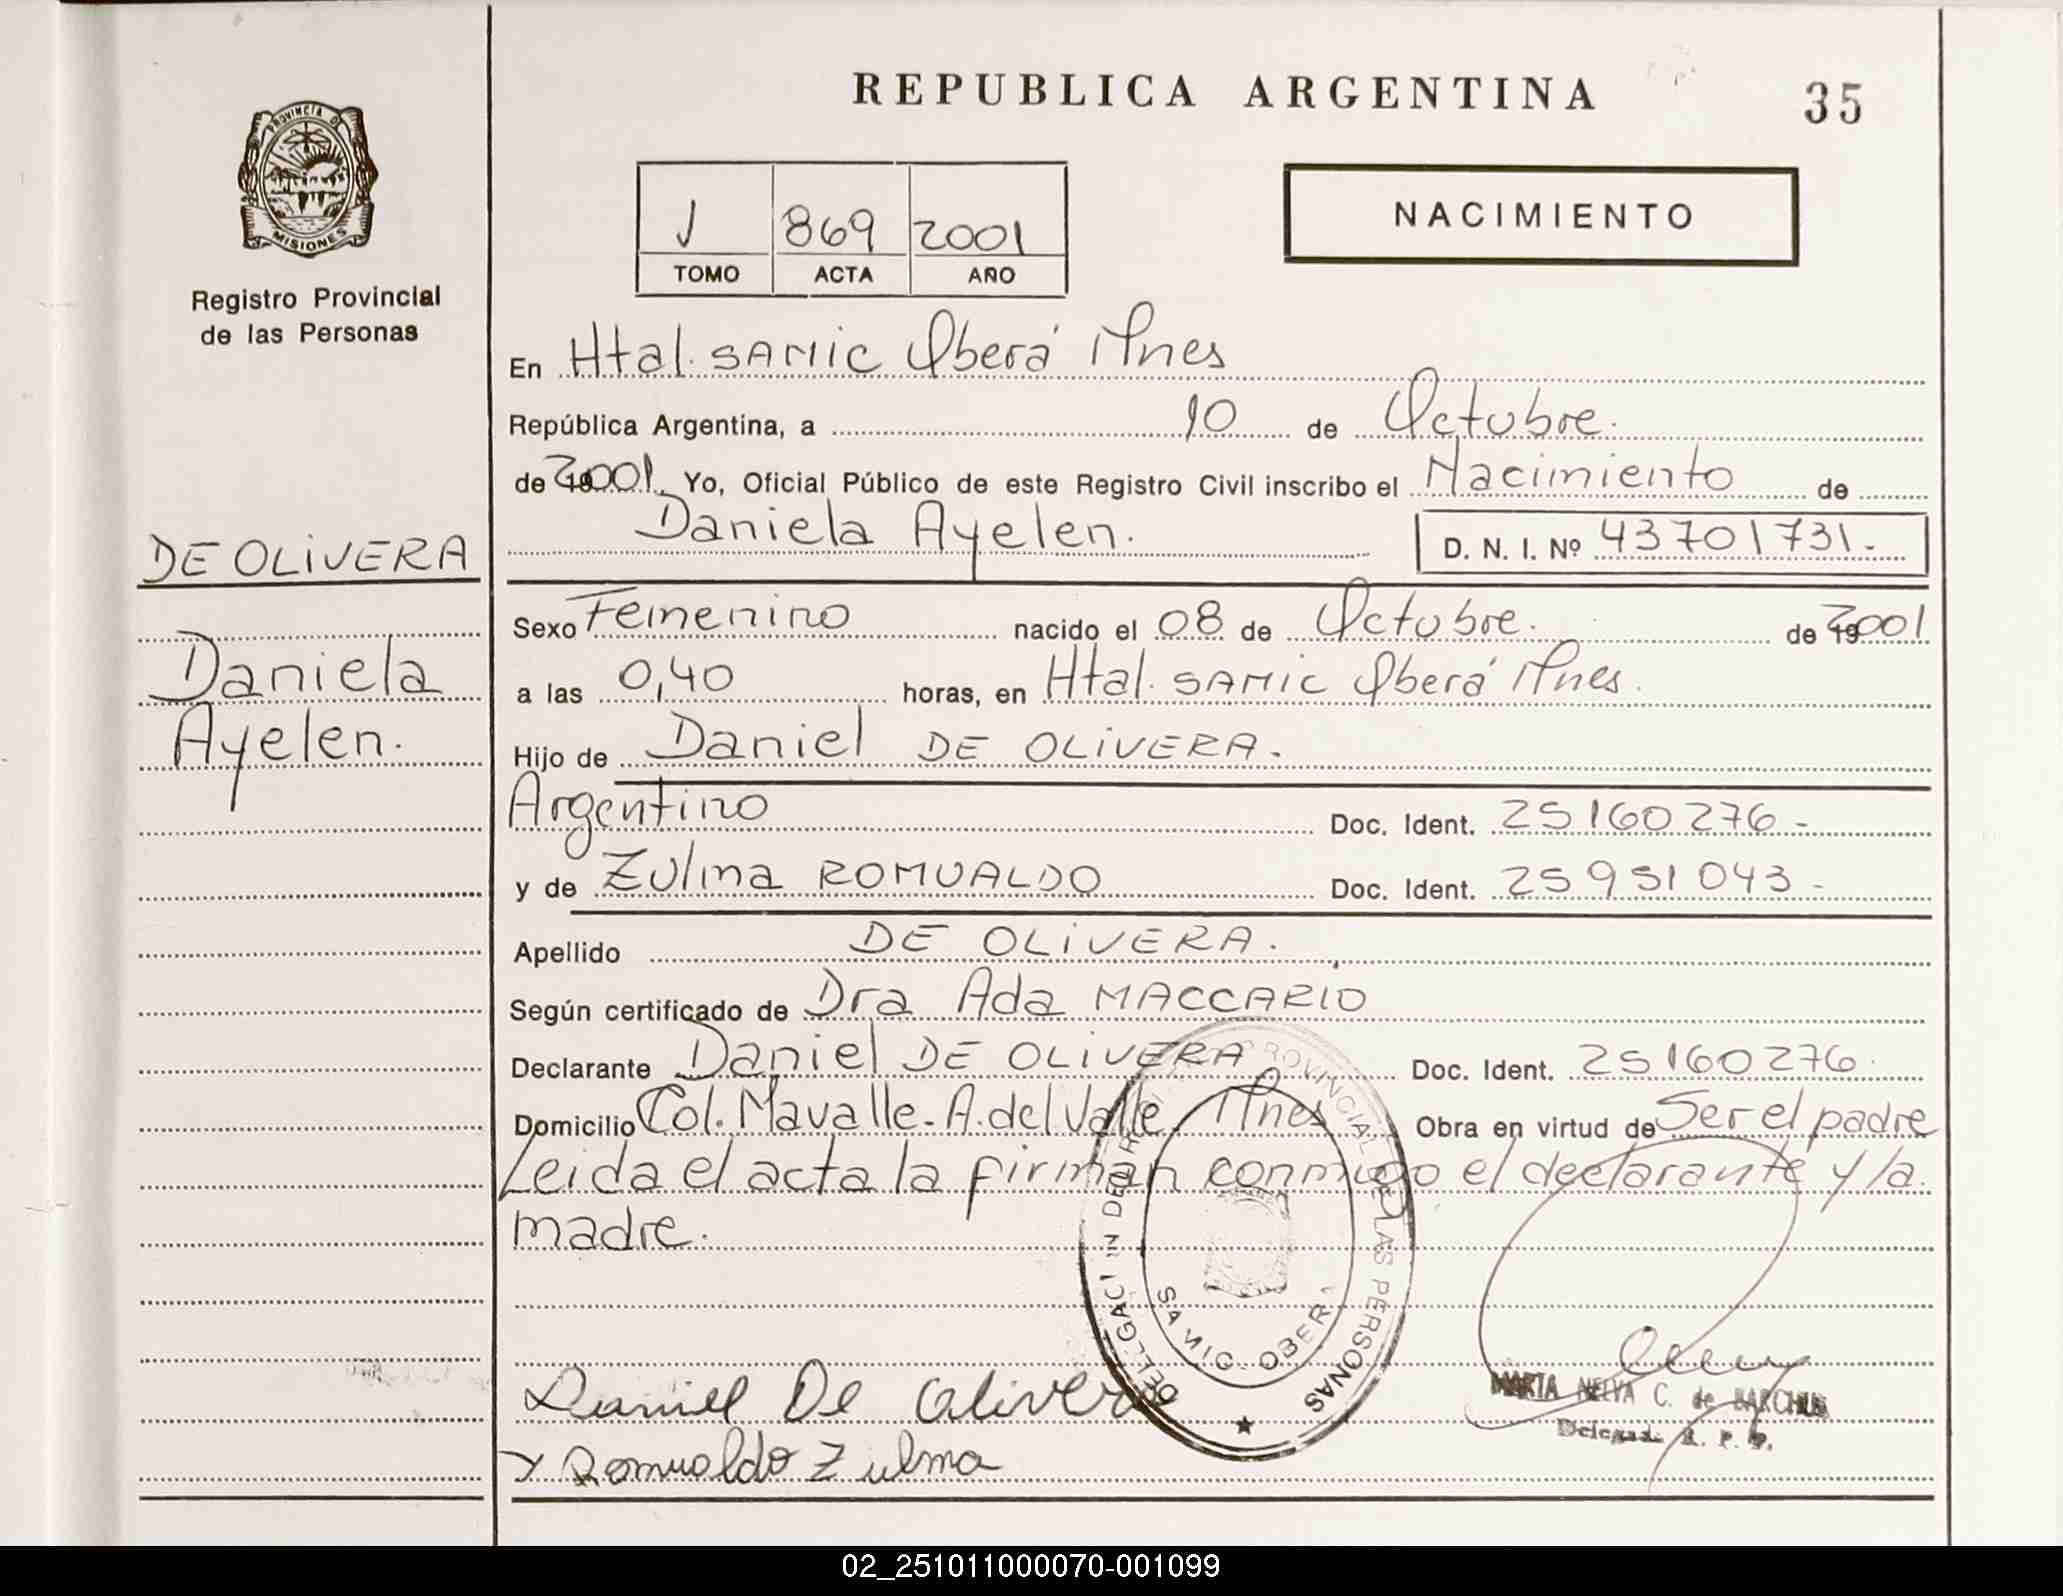 REPUBLICA ARGENTINA
35
PROVINCIA DE
MISIONES
Registro Provincial
de las Personas
J 869 2001
TOMO ACTA AÑO
NACIMIENTO
En Htal. SAMIC Oberá Mnes
República Argentina, a 10 de Octubre.
de 2001. Yo, Oficial Público de este Registro Civil inscribo el Nacimiento de
Daniela Ayelen.
D. N. I. Nº 43701731.-
DE OLIVERA
Daniela
Ayelen.
Sexo Femenino nacido el 08 de Octubre. de 2001
a las 0,40 horas, en Htal. SAMIC Oberá Mnes.
Hijo de Daniel DE OLIVERA.
Argentino Doc. Ident. 25160276-
y de Zulma ROMUALDO Doc. Ident. 25951043-
Apellido DE OLIVERA.
Según certificado de Dra Ada MACCARIO
Declarante Daniel DE OLIVERA Doc. Ident. 25160276.
Domicilio Col. Mavalle-A.del Valle Mnes Obra en virtud de Ser el padre
Leida el acta la firman conmigo el declarante y la
madre.
PROVINCIAL DE LAS PERSONAS
SAMIC OBERA
Daniel De Olivera
y Romualdo Zulma
MARTA NELVA C. de
R. P. P.
02_251011000070-001099